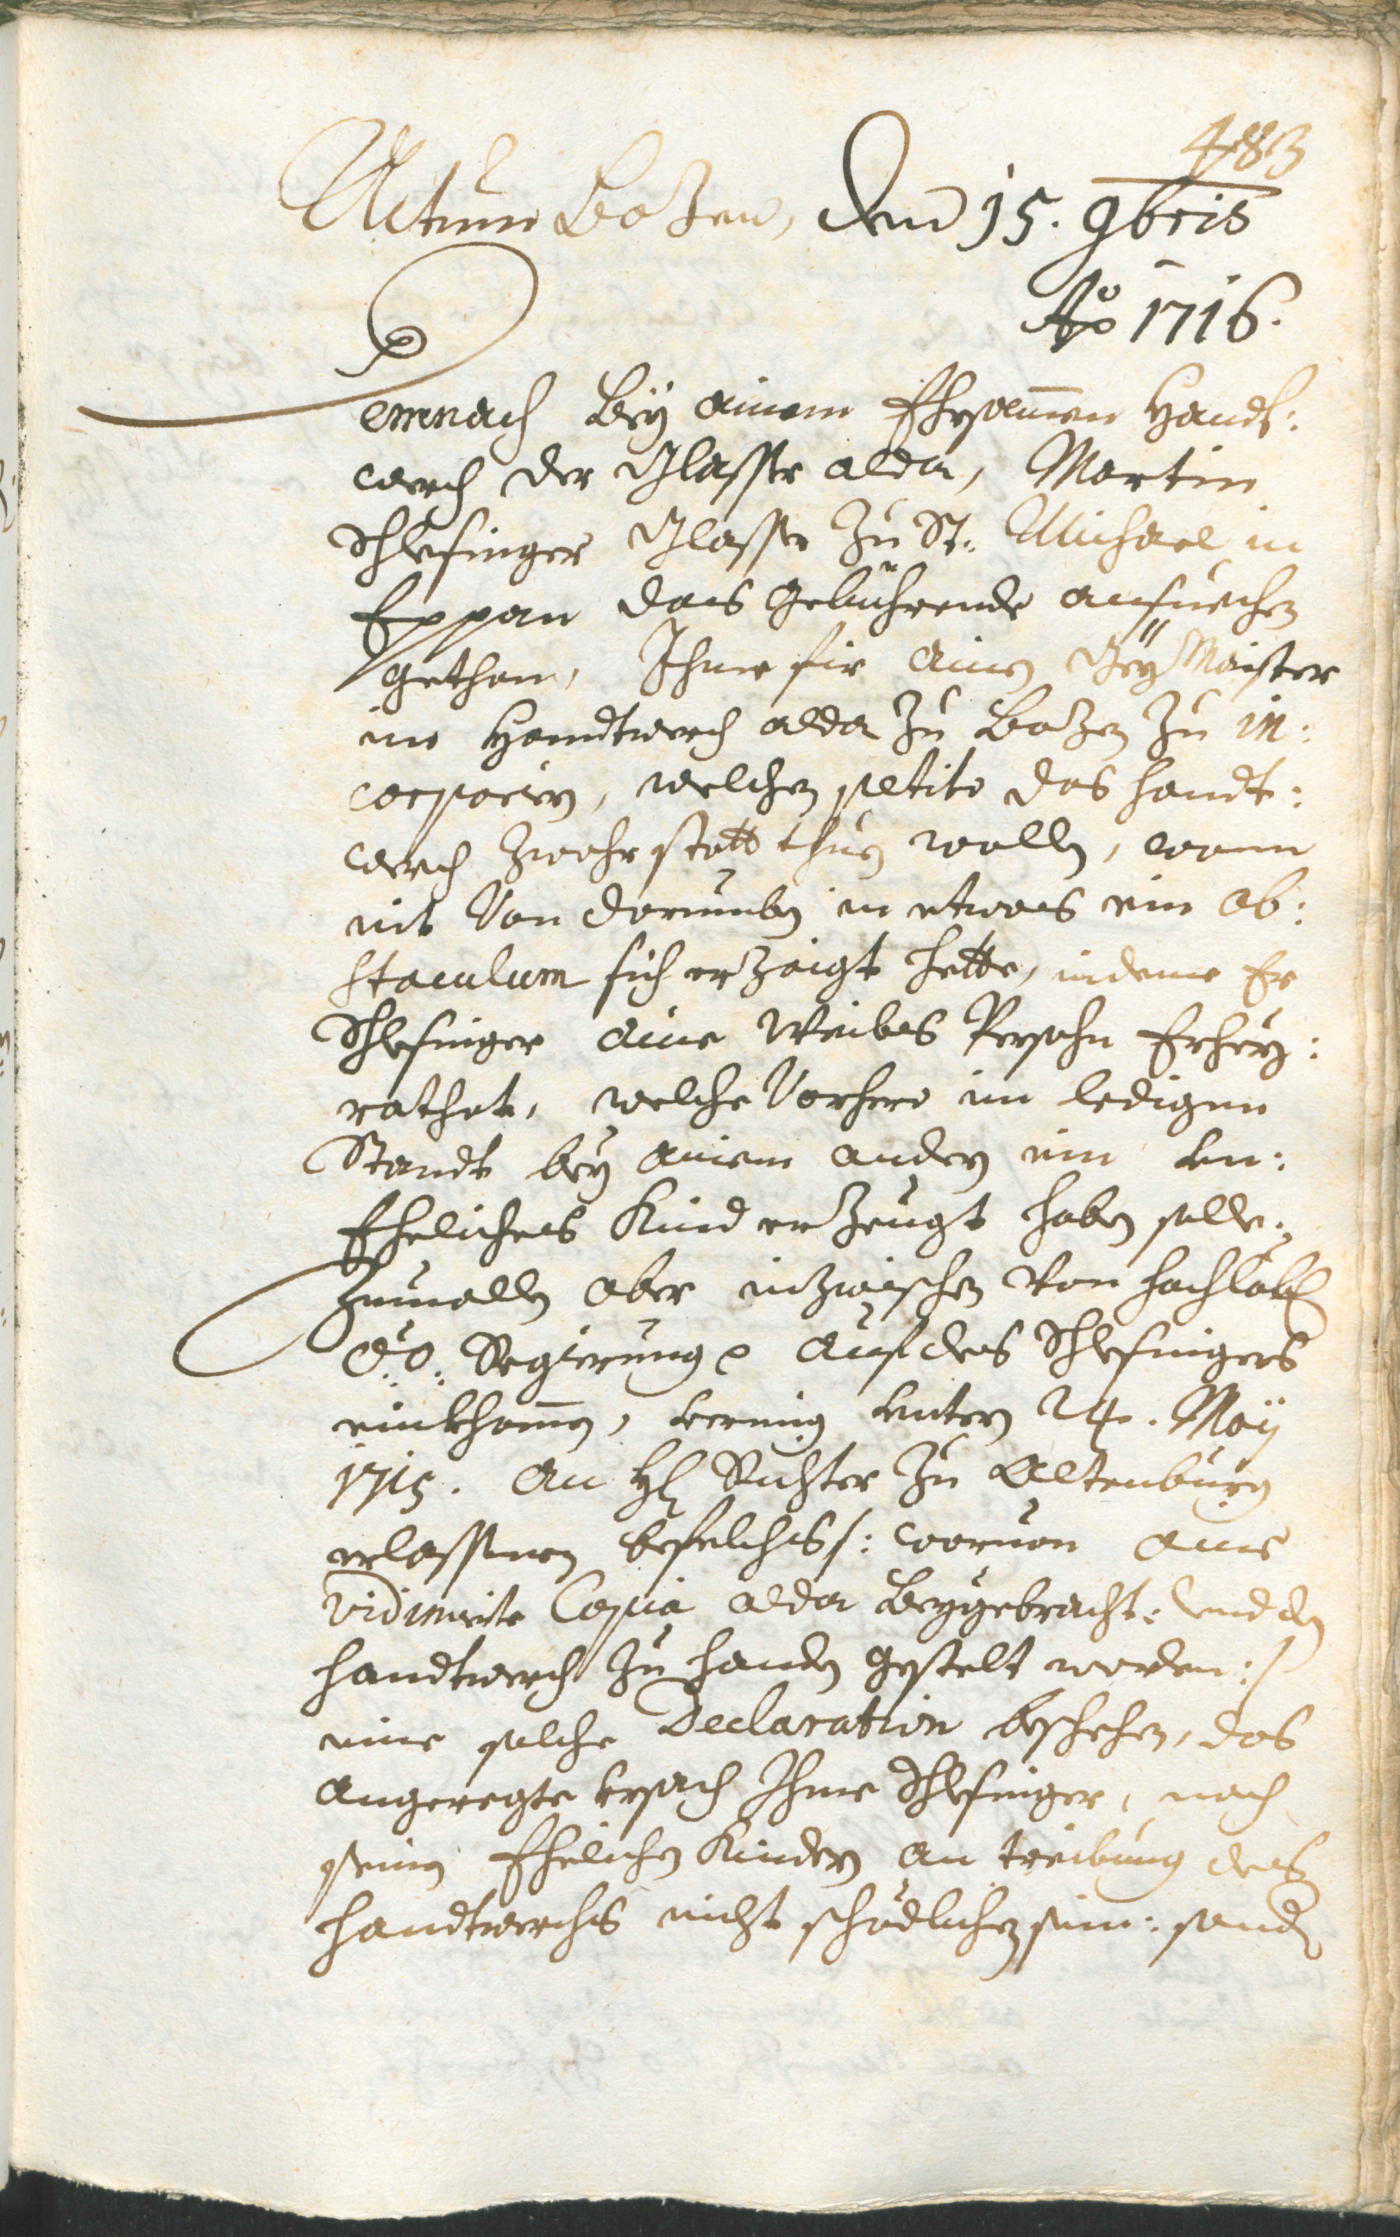 483
Actum Bozen, den 15. 9bris
Ao 1716.
Demnach bey ainem Ehrsammen Handt:
werch der Glasser alda, Martin
Schlesinger Glasser zu St: Michael in
Eppan das gebührende ansuechen
gethan, Ihme für ainen Geÿ Maister
im Handtwerch alda zu Bozen zu in:
corporirn, welchen petito das handt:
werch zwahr statt thuen wollen, wann
nit von darumben in etwas ein ob:
staculum sich erzaigt hette, indeme Er
Schlesinger aine Weibes Persohn Erheÿ:
rathet, welche vorhero im ledigen
Standt beÿ ainem andern ein un:
Eheliches Kind erzeugt haben solle.
Zumallen aber inzwischen von hochlobl
O: Ö: Regierung auf des Schlesingers
einkhomen, unterm 24. Maÿ
1715. an H Richter zu Altenburg
erlassnen befelchs /: woruon aine
vidimirte Copia alda beygebracht: und den
handtwerch zu handen gestelt worden :/
eine solche Declaration beschehen, das
angeregte ursach Ihme Schlesinger, noch
seinen Ehelichen Kindern an treibung des
handtwerchs nicht schödlichen sein: sond